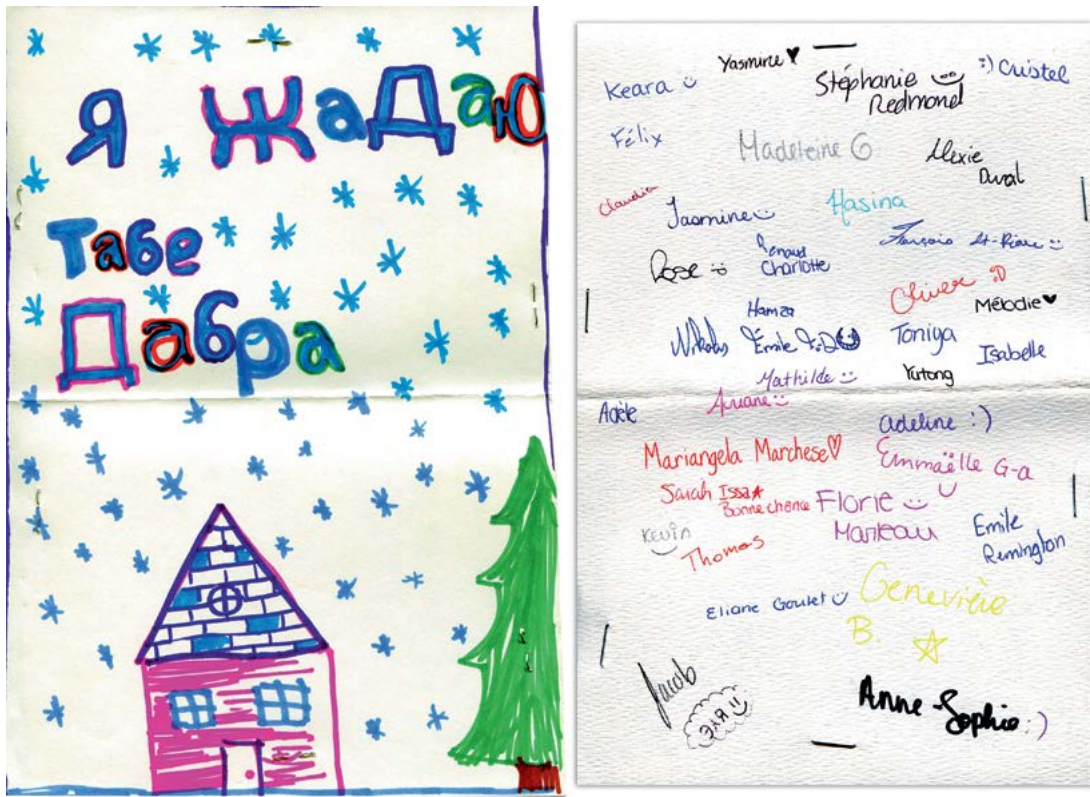 Я жадаю
табе
Дабра
Yasmine ♥
Keara
Stéphanie
Redmond
:) Cristel
Félix
Madeleine G
Alexie
Duval
Claudia
Jasmine
Hasina
François St-Pierre
Rose
Renaud
Charlotte
Oliver :D
Mélodie ♥
Hamza
Nikolas
Émile
Toniya
Isabelle
Mathilde
Yutong
Ariane
Adèle
adeline :)
Mariangela Marchese ♡
Emmaëlle G-a
Sarah Issa ★
Bonne chance
Florie
Marleau
Kevin
Thomas
Emile
Remington
Eliane Goulet
Geneviève
B. ☆
Jacob
Эля
Anne-Sophie :)